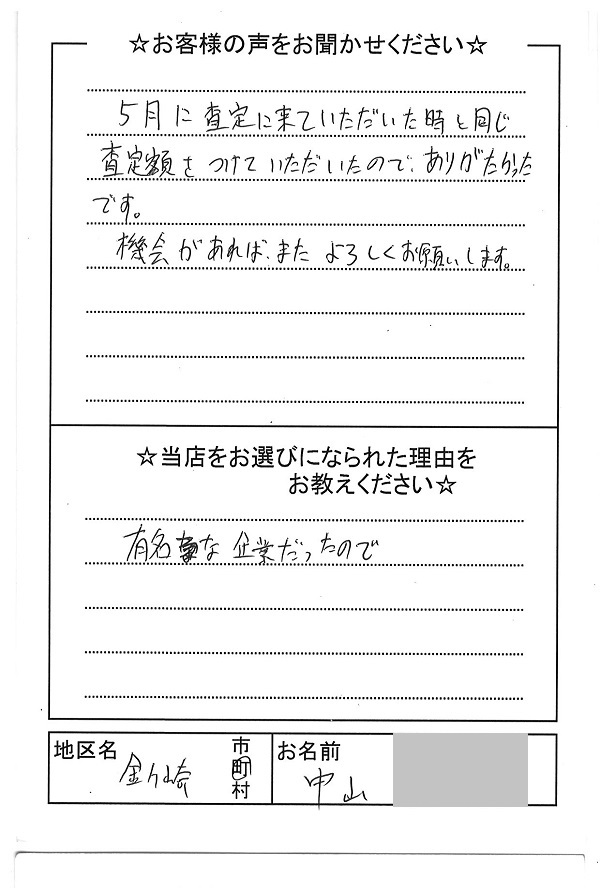 ☆お客様の声をお聞かせください☆
5月に査定に来ていただいた時と同じ
査定額をつけていただいたので、ありがたかった
です。
機会があれば、また よろしくお願いします。
☆当店をお選びになられた理由を
お教えください☆
有名な企業だったので
地区名 金ヶ崎 市町村 お名前 中山